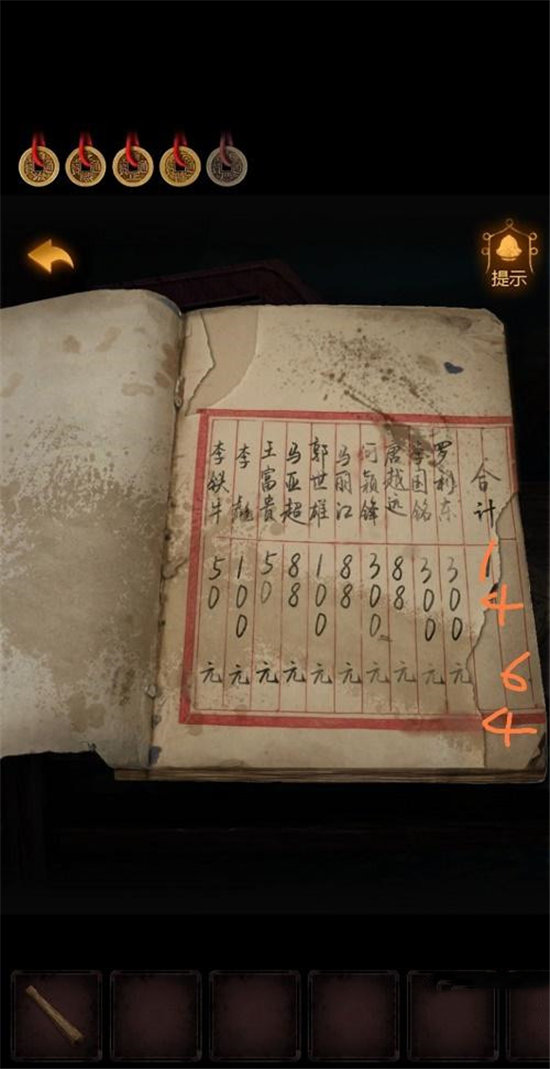 提示
李铁牛 50元
李 100元
王富贵 50元
马亚超 88元
郭世雄 100元
马丽江 88元
何颖锋 300元
唐越远 88元
李国铭 300元
罗 东 300元
合计 1464